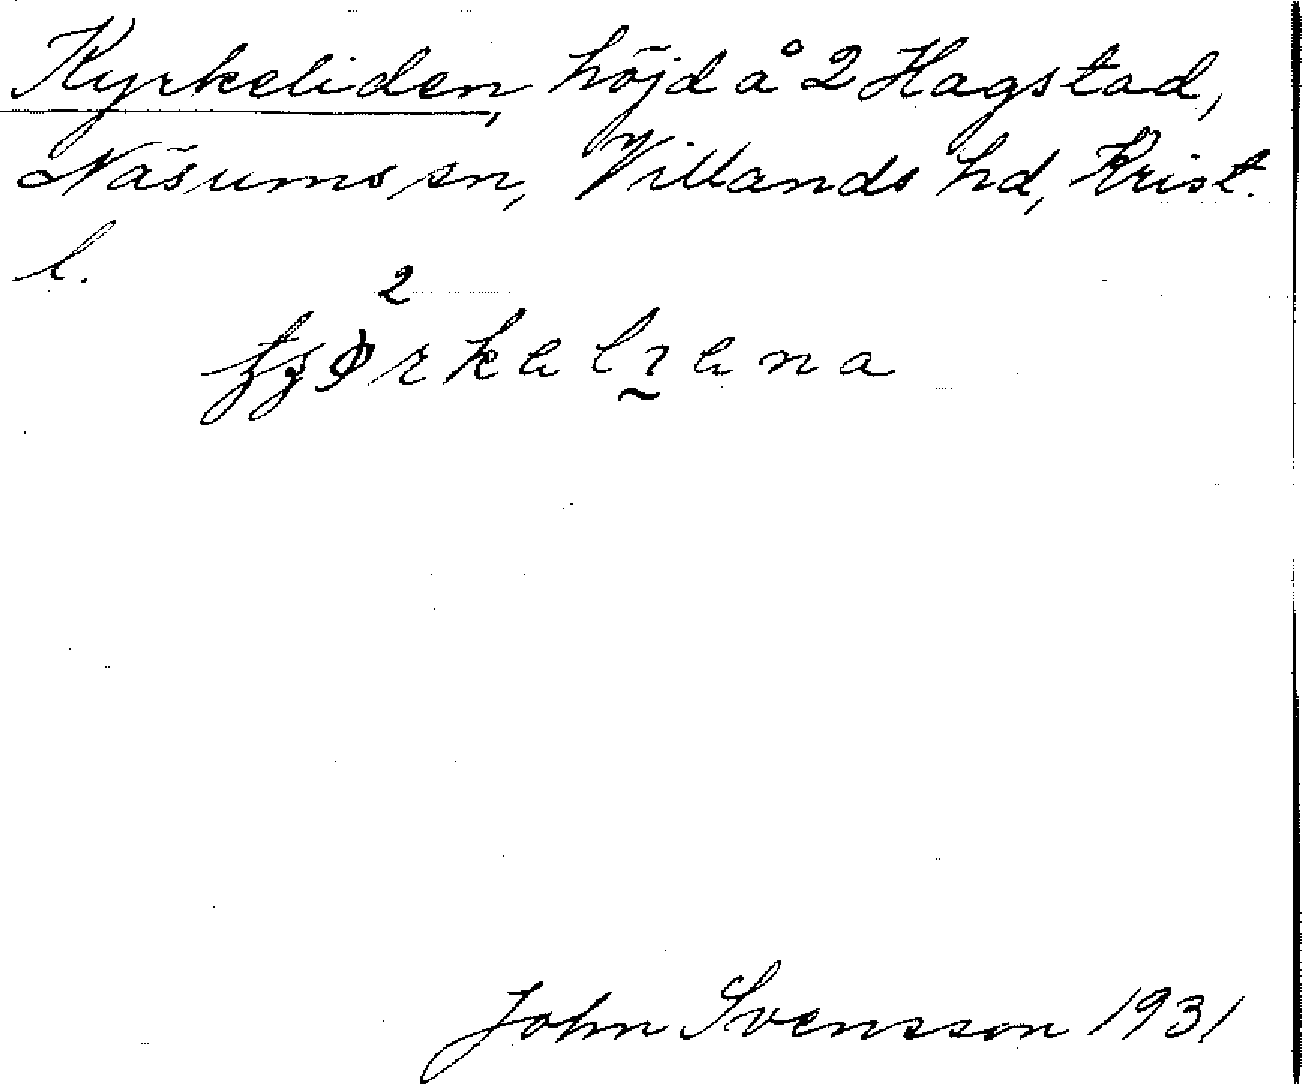 Kyrkeliden, höjd å 2 Hagstad,
Näsums sn, Villands hd, Krist.
l.
2
John Svensson 1931